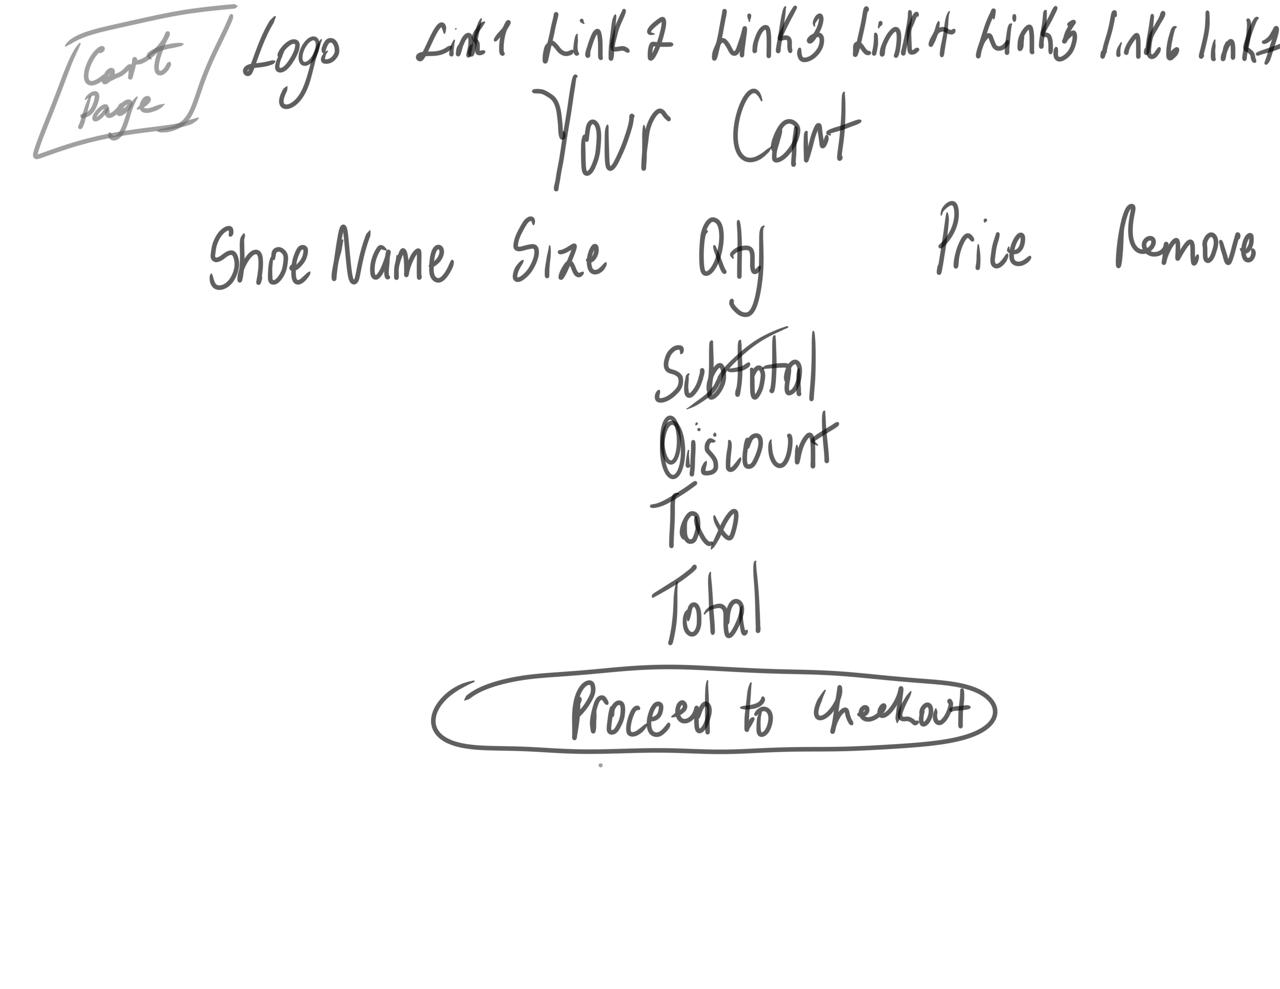 Cart
Page
Logo Link 1 Link 2 Link 3 Link 4 Link 5 link 6 link 7
Your Cart
Shoe Name Size Qty Price Remove
Subtotal
Discount
Tax
Total
Proceed to checkout